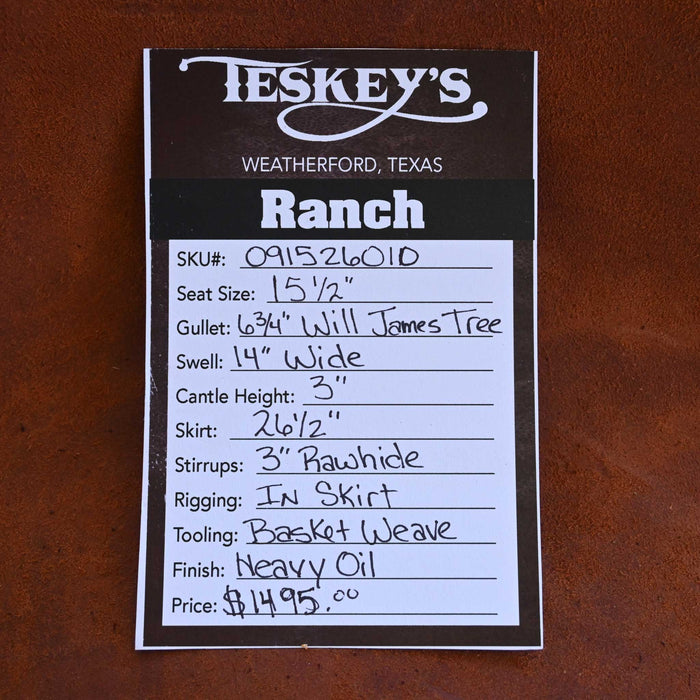 TESKEY'S
WEATHERFORD, TEXAS
Ranch
SKU#: 09152601D
Seat Size: 15 1/2"
Gullet: 6 3/4" Will James Tree
Swell: 14" Wide
Cantle Height: 3"
Skirt: 26 1/2"
Stirrups: 3" Rawhide
Rigging: In Skirt
Tooling: Basket Weave
Finish: Heavy Oil
Price: $1495.00